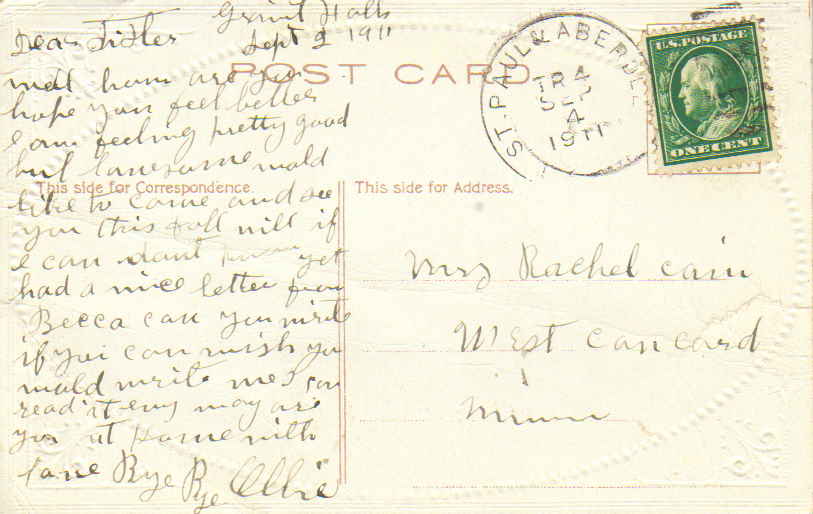 Granit Falls
Dear Sister Sept 2 1911
POST CARD
well how are you
hope you feel better
I am feeling pretty good
but lonesome wold
This side for Correspondence.
like to come and see
you this fall will if
I can dont know yet
had a nice letter from
Becca can you write
if you can wish you
wold write me I can
read it eny way are
you at home with
love Bye
Bye Ollie
ST. PAUL & ABERDEE
TR 4
SEP
4
1911
U.S. POSTAGE
ONE CENT
This side for Address.
Mrs Rachel Cain
West Concord
Minn